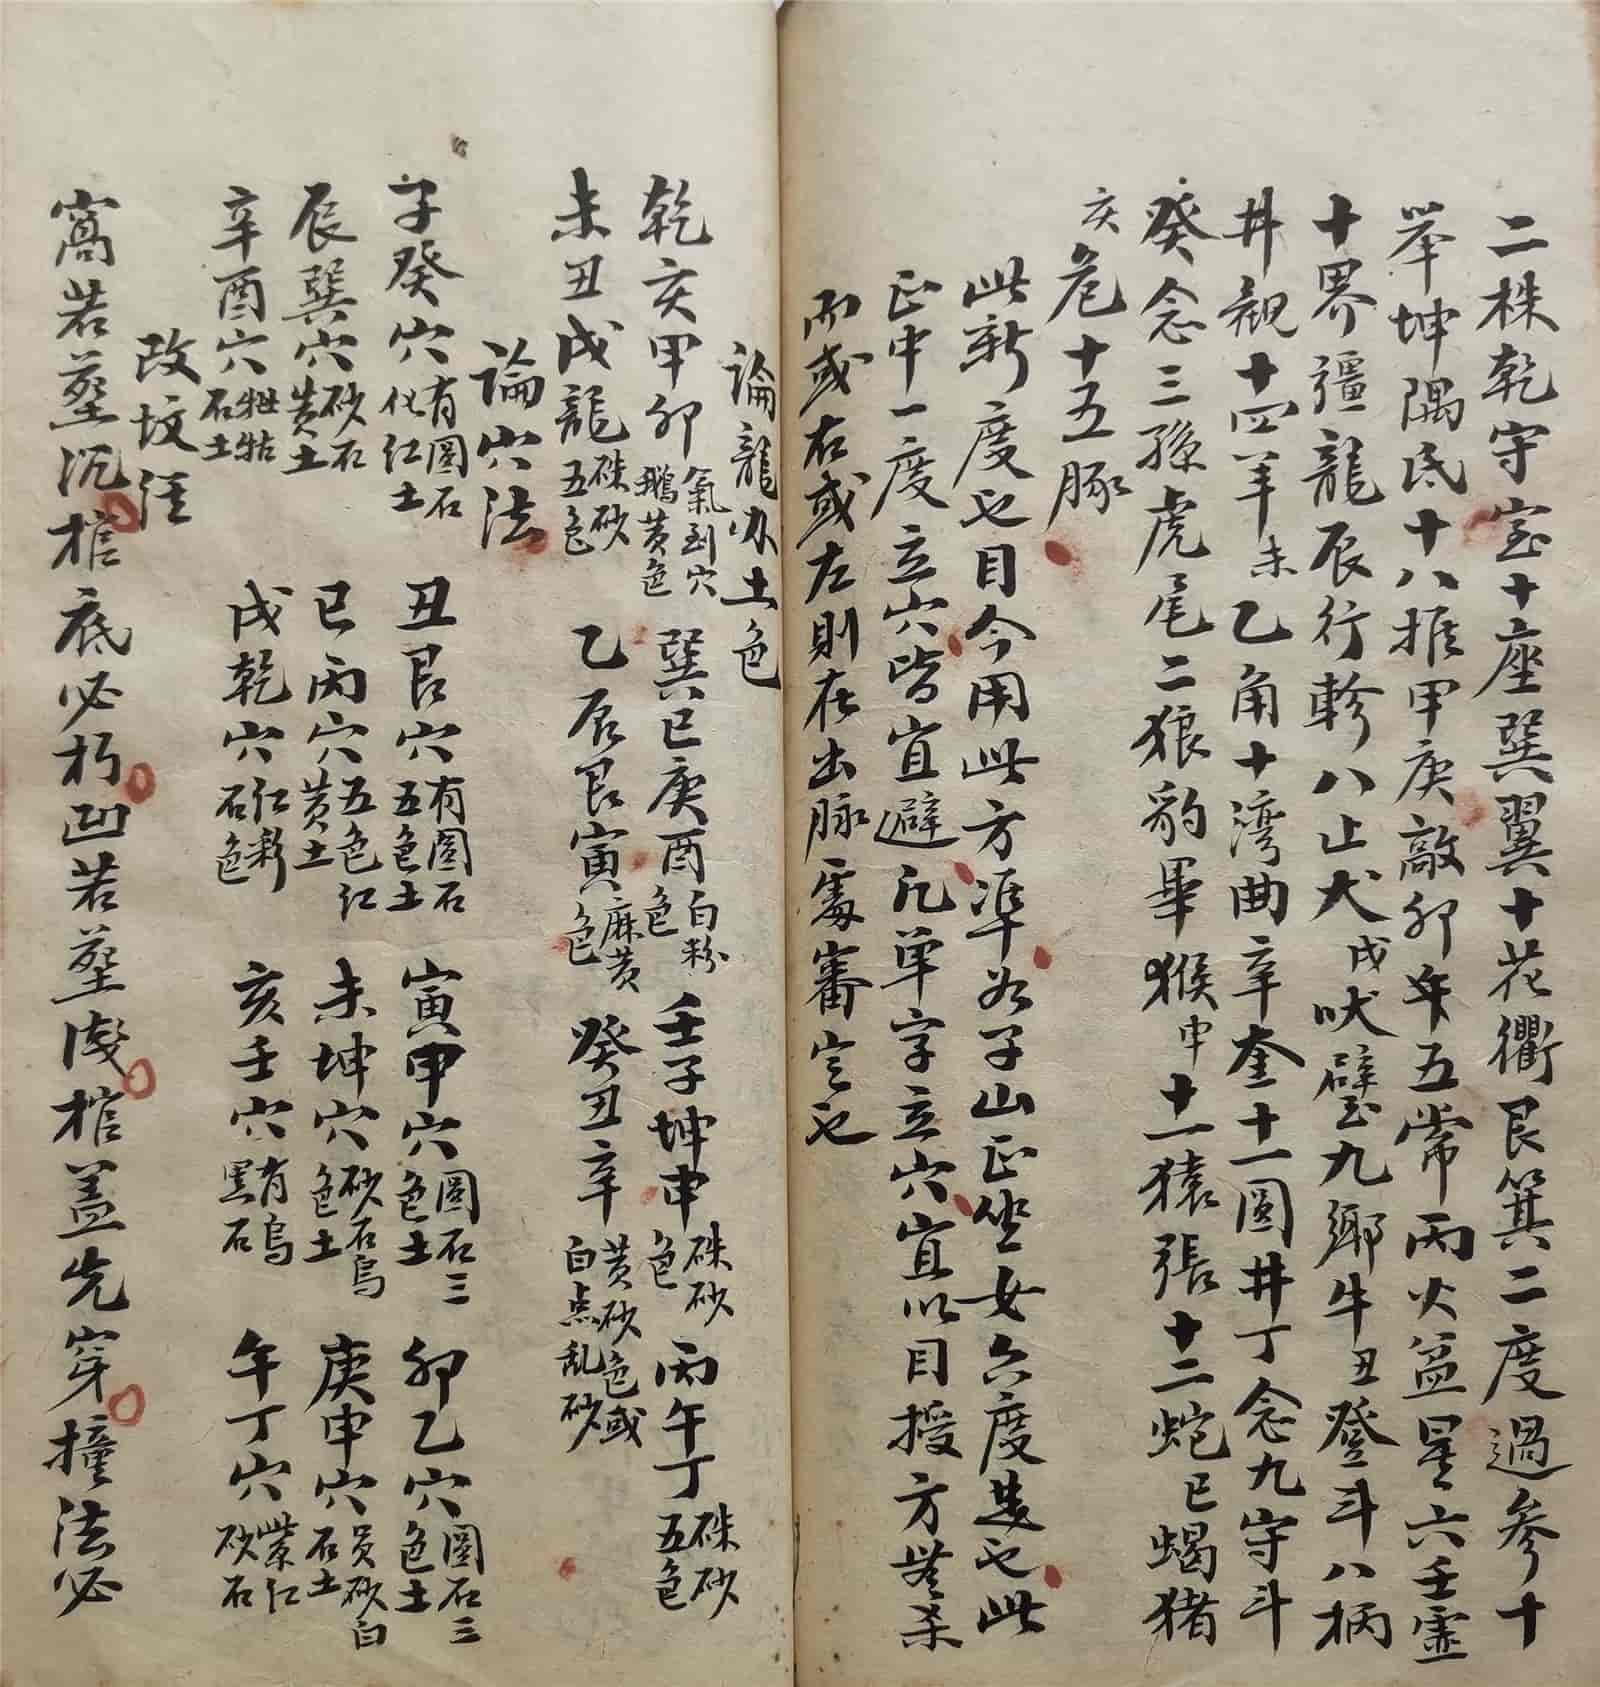 二株乾守室十座巽翼十花衢艮箕二度過參十
举坤隅氐十八推甲庚敲卯年五常丙火盆星六壬虚
十界疆龍辰行軫八止犬戌吠壁九鄉牛丑登斗八柄
井觀十四羊未乙角十湾曲辛奎十一圓井丁念九守斗
癸念三孫虎尾二狼豹畢猴申十一猿張十二蛇巳蝎猪
亥危十五豚
此新度也目今用此方準为子山正坐女六度是也此
正中一度立穴皆宜避凡单字立穴宜以目授方無杀
而或右或左則在出脉處審定也
論龍办土色
乾亥甲卯氣到穴鵝黄色 巽巳庚酉白粉色 壬子坤申硃砂色 丙午丁硃砂五色
未丑戌龍硃砂五色 乙辰艮寅麻黄色 癸丑辛黄砂色或白点乱砂
論穴法
子癸穴有圓石化红土 丑艮穴有圓石五色土 寅甲穴圓石三色土 卯乙穴圓石三色土
辰巽穴砂石黄土 巳丙穴五色红黄土 未坤穴砂石烏色土 庚申穴员砂白石土
辛酉穴牲牯石土 戌乾穴红彩石色 亥壬穴有烏黑石 午丁穴紫红砂石
改坟经
窩若塟沉棺底必朽凹若塟浅棺盖先穿撞法必